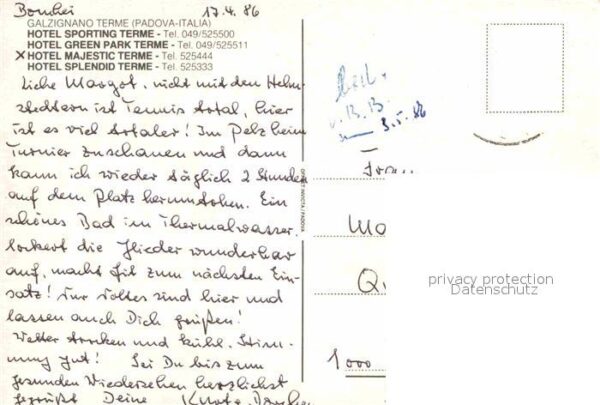 17.4.86
GALZIGNANO TERME (PADOVA-ITALIA)
HOTEL SPORTING TERME - Tel. 049/525500
HOTEL GREEN PARK TERME - Tel. 049/525511
X HOTEL MAJESTIC TERME - Tel. 525444
HOTEL SPLENDID TERME - Tel. 525333
Liebe Margot, nicht mit den Helm-
stedtern ist Tennis total, hier
ist es viel totaler! Im Pelz beim
Turnier zuschauen und dann
kann ich wieder täglich 2 Stunden
auf dem Platz herumtoben. Ein
schönes Bad im Thermalwasser
lockert die Glieder wunderbar
auf, macht fit zum nächsten Ein-
satz! sind hier und
lassen auch Dich grüßen!
Wetter trocken und kühl, Stim-
mung gut! Sei Du bis zum
gesunden Wiedersehen herzlichst
gegrüßt Deine
3.5.86
Frau
Ma
Qu
1000
privacy protection
Datenschutz